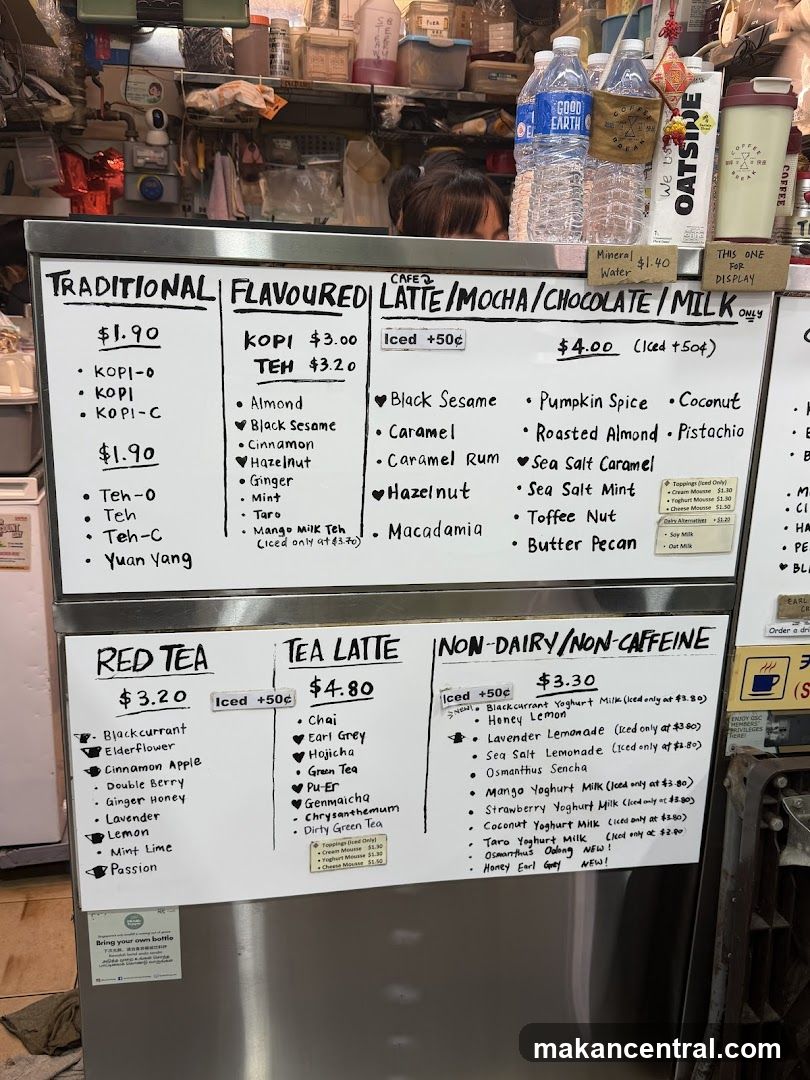 GOOD EARTH
COFFEE BREAK
We us
OATSIDE
COFFEE BREAK
Mineral Water $1.40
THIS ONE FOR DISPLAY
TRADITIONAL
$1.90
• KOPI-O
• KOPI
• KOPI-C
$1.90
• Teh-O
• Teh
• Teh-C
• Yuan Yang
FLAVOURED
KOPI $3.00
TEH $3.20
• Almond
♥ Black Sesame
• Cinnamon
♥ Hazelnut
• Ginger
• Mint
• Taro
• Mango Milk Teh
(Iced only at $3.70)
CAFE
LATTE/MOCHA/CHOCOLATE/MILK ONLY
Iced +50¢
$4.00 (Iced +50¢)
♥ Black Sesame
• Caramel
• Caramel Rum
♥ Hazelnut
• Macadamia
• Pumpkin Spice
• Roasted Almond
♥ Sea Salt Caramel
• Sea Salt Mint
• Toffee Nut
• Butter Pecan
• Coconut
• Pistachio
Toppings (Iced Only)
• Cream Mousse $1.30
• Yoghurt Mousse $1.30
• Cheese Mousse $1.50
Dairy Alternatives +$1.20
• Soy Milk
• Oat Milk
RED TEA
$3.20
Iced +50¢
Blackcurrant
Elderflower
Cinnamon Apple
• Double Berry
• Ginger Honey
• Lavender
Lemon
• Mint Lime
Passion
TEA LATTE
$4.80
• Chai
♥ Earl Grey
♥ Hojicha
• Green Tea
♥ Pu-Er
♥ Genmaicha
• Chrysanthemum
• Dirty Green Tea
Toppings (Iced Only)
• Cream Mousse $1.30
• Yoghurt Mousse $1.30
• Cheese Mousse $1.50
NON-DAIRY/NON-CAFFEINE
Iced +50¢
$3.30
NEW! • Blackcurrant Yoghurt Milk (Iced only at $3.80)
• Honey Lemon
Lavender Lemonade (Iced only at $3.80)
• Sea Salt Lemonade (Iced only at $3.80)
• Osmanthus Sencha
• Mango Yoghurt Milk (Iced only at $3.80)
• Strawberry Yoghurt Milk (Iced only at $3.80)
• Coconut Yoghurt Milk (Iced only at $3.80)
• Taro Yoghurt Milk (Iced only at $3.80)
• Osmanthus Oolong NEW!
• Honey Earl Grey NEW!
Order a dri
ENJOY GSC MEMBERS' PRIVILEGES HERE!
Bring your own bottle
makancentral.com